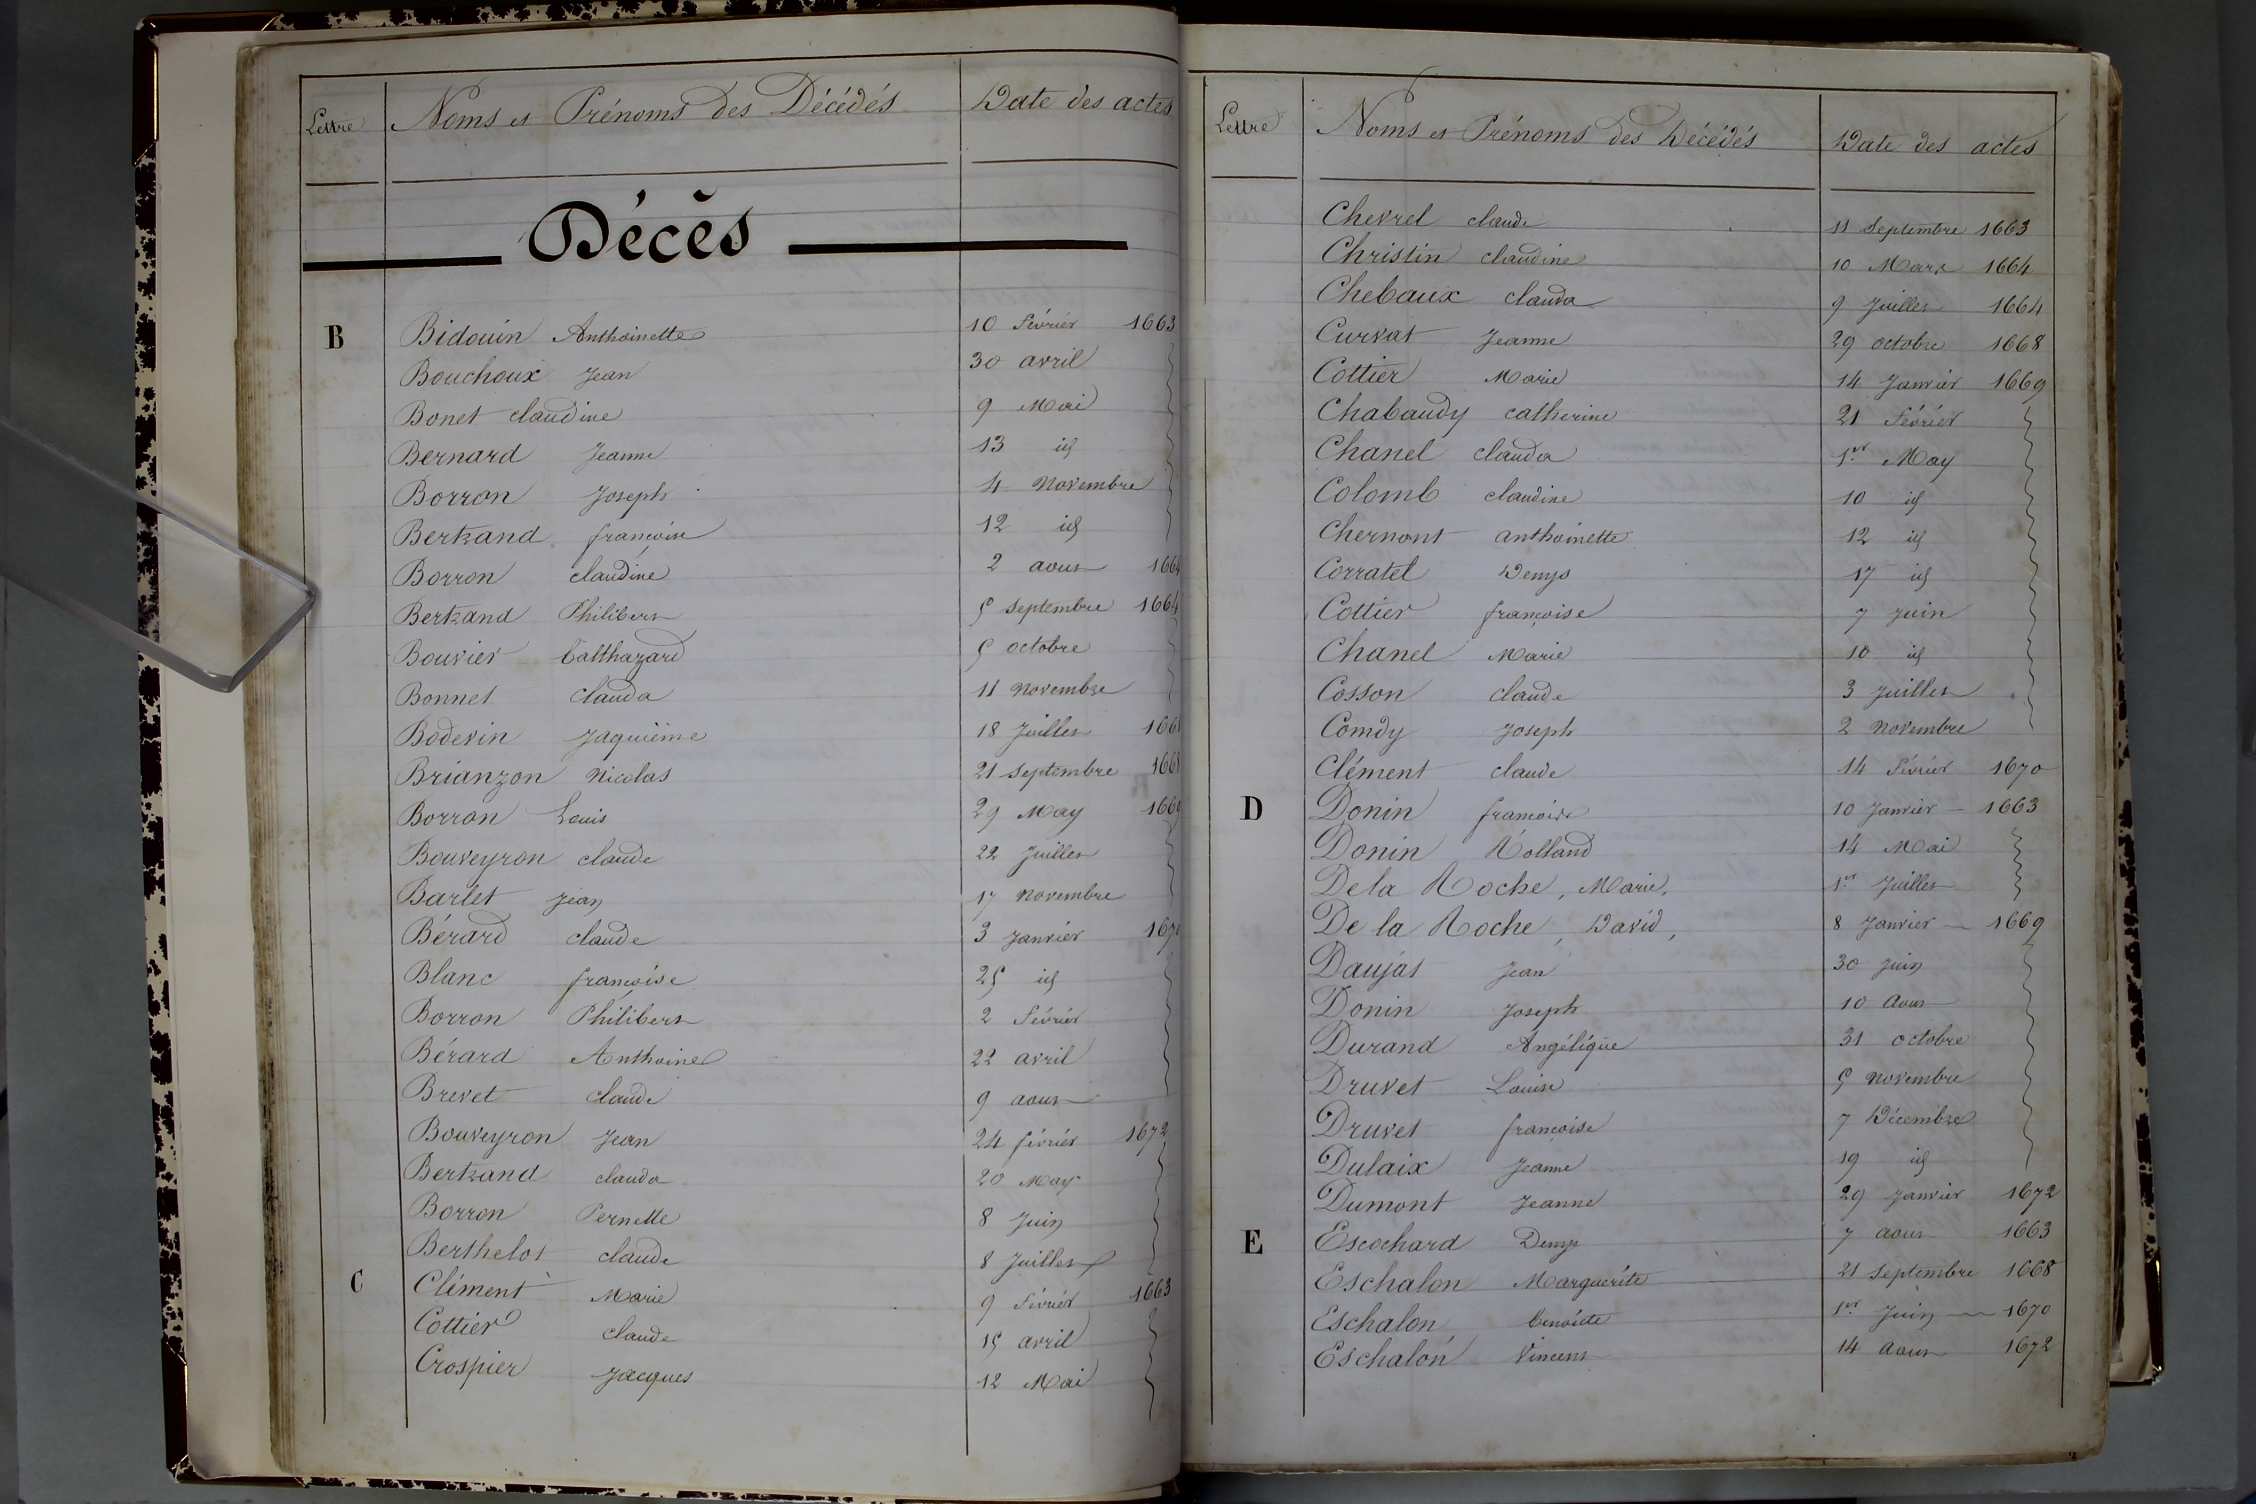 Lettre Noms et Prénoms des Décédés Date des actes
Décès
B Bidouin Anthoinette 10 Février 1663
Bouchoux Jean 30 avril
Bonet claudine 9 Mai
Bernard Jeanne 13 id
Borron Joseph 4 Novembre
Bertrand françoise 12 id
Borron claudine 2 aout 1664
Bertrand Philibert 5 Septembre 1664
Bouvier balthazard 5 octobre
Bonnet clauda 11 Novembre
Bodevin Jaquième 18 Juillet
Brianzon Nicolas 21 Septembre 1668
Borron Louis 29 May 1669
Bouveyron claude 22 Juillet
Barlet Jean 17 Novembre
Bérard claude 3 Janvier 1670
Blanc françoise 25 id
Borron Philibert 2 Février
Bérard Anthoine 22 avril
Brevet claude 9 aout
Bouveyron Jean 24 février 1672
Bertrand clauda 20 May
Borron Pernette 8 Juin
Berthelot claude 8 Juillet
C Clément Marie 9 Février 1663
Cottier claude 15 avril
Crospier Jacques 12 Mai
Lettre Noms et Prénoms des Décédés Date des actes
Chevrel claude 11 Septembre 1663
Christin claudine 10 Mars 1664
Chebaux clauda 9 Juillet 1664
Curvat Jeanne 29 octobre 1668
Cottier Marie 14 Janvier 1669
Chabaudy catherine 21 Février
Chanel clauda 1er May
Colomb claudine 10 id
Chernont anthoinette 12 id
Corratel Denys 17 id
Cottier françoise 7 Juin
Chanel Marie 10 id
Cosson claude 3 Juillet
Comdy Joseph 2 Novembre
Clément claude 14 Février 1670
D Donin françoise 10 Janvier 1663
Donin Rolland 14 Mai
De la Roche, Marie, 1er Juillet
De la Roche, David, 8 Janvier 1669
Daujat Jean 30 Juin
Donin Joseph 10 Aout
Durand Angélique 31 octobre
Druvet Louise 5 Novembre
Druvet françoise 7 Décembre
Dulaix Jeanne 19 id
Dumont Jeanne 29 Janvier 1672
E Escochard Denys 7 aout 1663
Eschalon Marguerite 21 Septembre 1668
Eschalon benoite 1er Juin 1670
Eschalon Vincent 14 Aout 1672